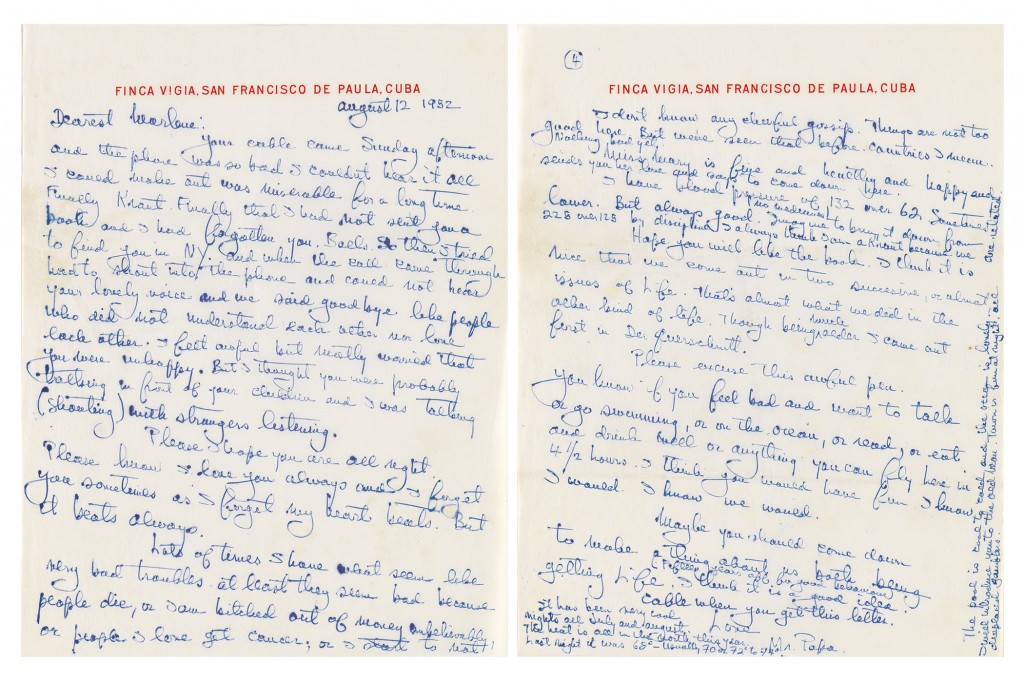 FINCA VIGIA, SAN FRANCISCO DE PAULA, CUBA
August 12 1952
Dearest Marlene:
Your cable came Sunday afternoon
and the phone was so bad I couldn't hear it all
I could make out was miserable for a long time.
Finally Kraut. Finally that I had not sent you a
book and I had forgotten you. Back. then I tried
to find you in NY. and when the call came through
had to shout into the phone and could not hear
your lovely voice and we said goodbye like people
who did not understand each other nor love
each other. I felt awful but mostly worried that
you were unhappy. But I thought you were probably
talking in front of your children and I was talking
(shouting) with strangers listening.
Please I hope you are all right
Please know I love you always and I forget
you sometimes as I forget my heart beats. But
it beats always.
Lots of times I have what seem like
very bad troubles. at least they seem bad because
people die, or I am bitched out of money unbelievably
or people I love get cancer, or I to not
(4)
FINCA VIGIA, SAN FRANCISCO DE PAULA, CUBA
I don't know any cheerful gossip. Things are not too
good here. But we've seen that before. Countries I mean.
Nothing bad yet.
Miss Mary is fine and healthy and happy and
sends you her love and says to come down here.
I have blood pressure of 132 over 62. Sometimes
lower. But always good. Imagine to bring it down from
no medicines
225 over 125 by discipline. I always think I am a Kraut because we
are related
Hope you will like the book. I think it is
nice that we come out in two successive, or almost
issues of Life. That's almost what we did in the
other kind of life. Though being older I came out
first in Der Querschnitt.
Please excuse this awful pen.
You know if you feel bad and want to talk
or go swimming, or on the ocean, or read, or eat
and drink well or anything you can fly here in
4 1/2 hours. I think you would have fun I know
I would. I know we would.
Maybe you should come down
to make a thing about us both being
getting Life. I think it is a good idea!
Cable when you get this letter.
Love
Papa.
It has been very cool
nights all July and August
The heat is all in the North this year.
Last night it was 65° - Usually 70 or 72° to 74°
The pool is cool and the ocean is lovely.